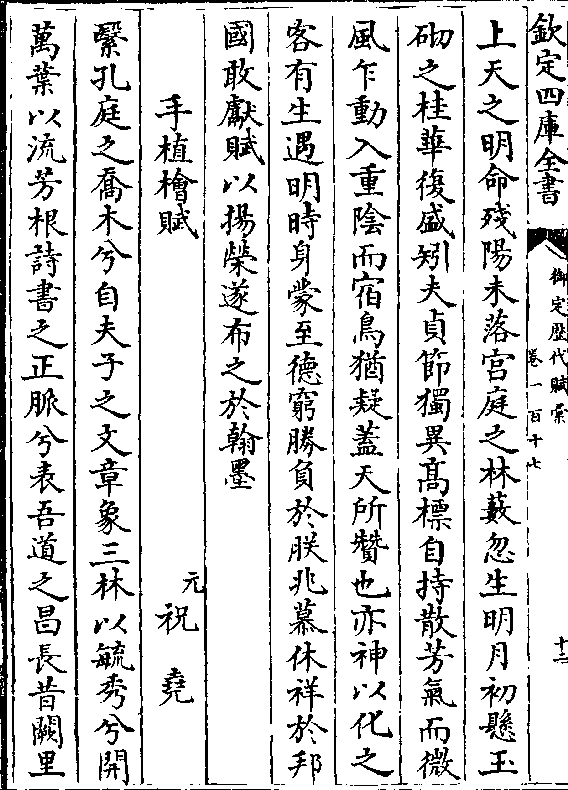 欽定四庫全書
御定歴代賦彙
卷一百十七
十二
上天之明命殘陽未落宫庭之林藪忽生明月初懸玉
砌之桂華復盛矧夫貞節獨異髙標自持散芳氣而微
風乍動入重陰而宿鳥猶疑蓋天所贊也亦神以化之
客有生遇明時身蒙至德窮勝負於朕兆慕休祥於邦
國敢獻賦以揚榮遂布之於翰墨
手植檜賦
元
祝堯
繄孔庭之喬木兮自夫子之文章象三林以毓秀兮開
萬葉以流芳根詩書之正脈兮表吾道之昌長昔闕里